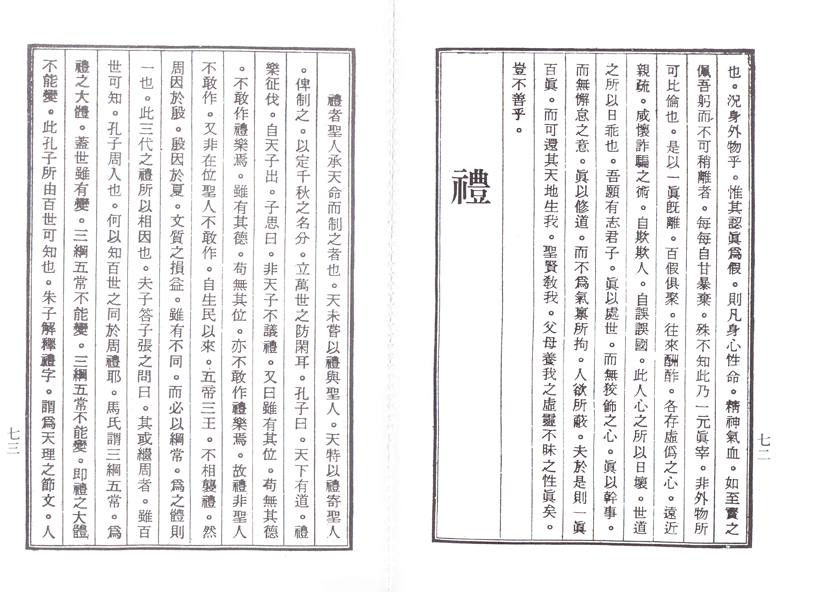 也。況身外物乎。惟其認眞爲假。則凡身心性命。精神氣血。如至寶之
佩吾躬而不可稍離者。每每自甘暴棄。殊不知此乃一元眞宰。非外物所
可比倫也。是以一眞旣離。百假俱聚。往來酬酢。各存虛僞之心。遠近
親疏。咸懷詐騙之術。自欺欺人。自誤誤國。此人心之所以日壞。世道
之所以日乖也。吾願有志君子。眞以處世。而無狡飾之心。眞以幹事。
而無懈怠之意。眞以修道。而不爲氣禀所拘。人欲所蔽。夫於是則一眞
百眞。而可還其天地生我。聖賢敎我。父母養我之虛靈不昧之性眞矣。
豈不善乎。
禮
七二
禮者聖人承天命而制之者也。天未嘗以禮與聖人。天特以禮寄聖人
。俾制之。以定千秋之名分。立萬世之防閑耳。孔子曰。天下有道。禮
樂征伐。自天子出。子思曰。非天子不議禮。又曰雖有其位。苟無其德
。不敢作禮樂焉。雖有其德。苟無其位。亦不敢作禮樂焉。故禮非聖人
不敢作。又非在位聖人不敢作。自生民以來。五帝三王。不相襲禮。然
周因於殷。殷因於夏。文質之損益。雖有不同。而必以綱常。爲之體則
一也。此三代之禮所以相因也。夫子答子張之問曰。其或繼周者。雖百
世可知。孔子周人也。何以知百世之同於周禮耶。馬氏謂三綱五常。爲
禮之大體。蓋世雖有變。三綱五常不能變。三綱五常不能變。即禮之大體
不能變。此孔子所由百世可知也。朱子解釋禮字。謂爲天理之節文。人
七三